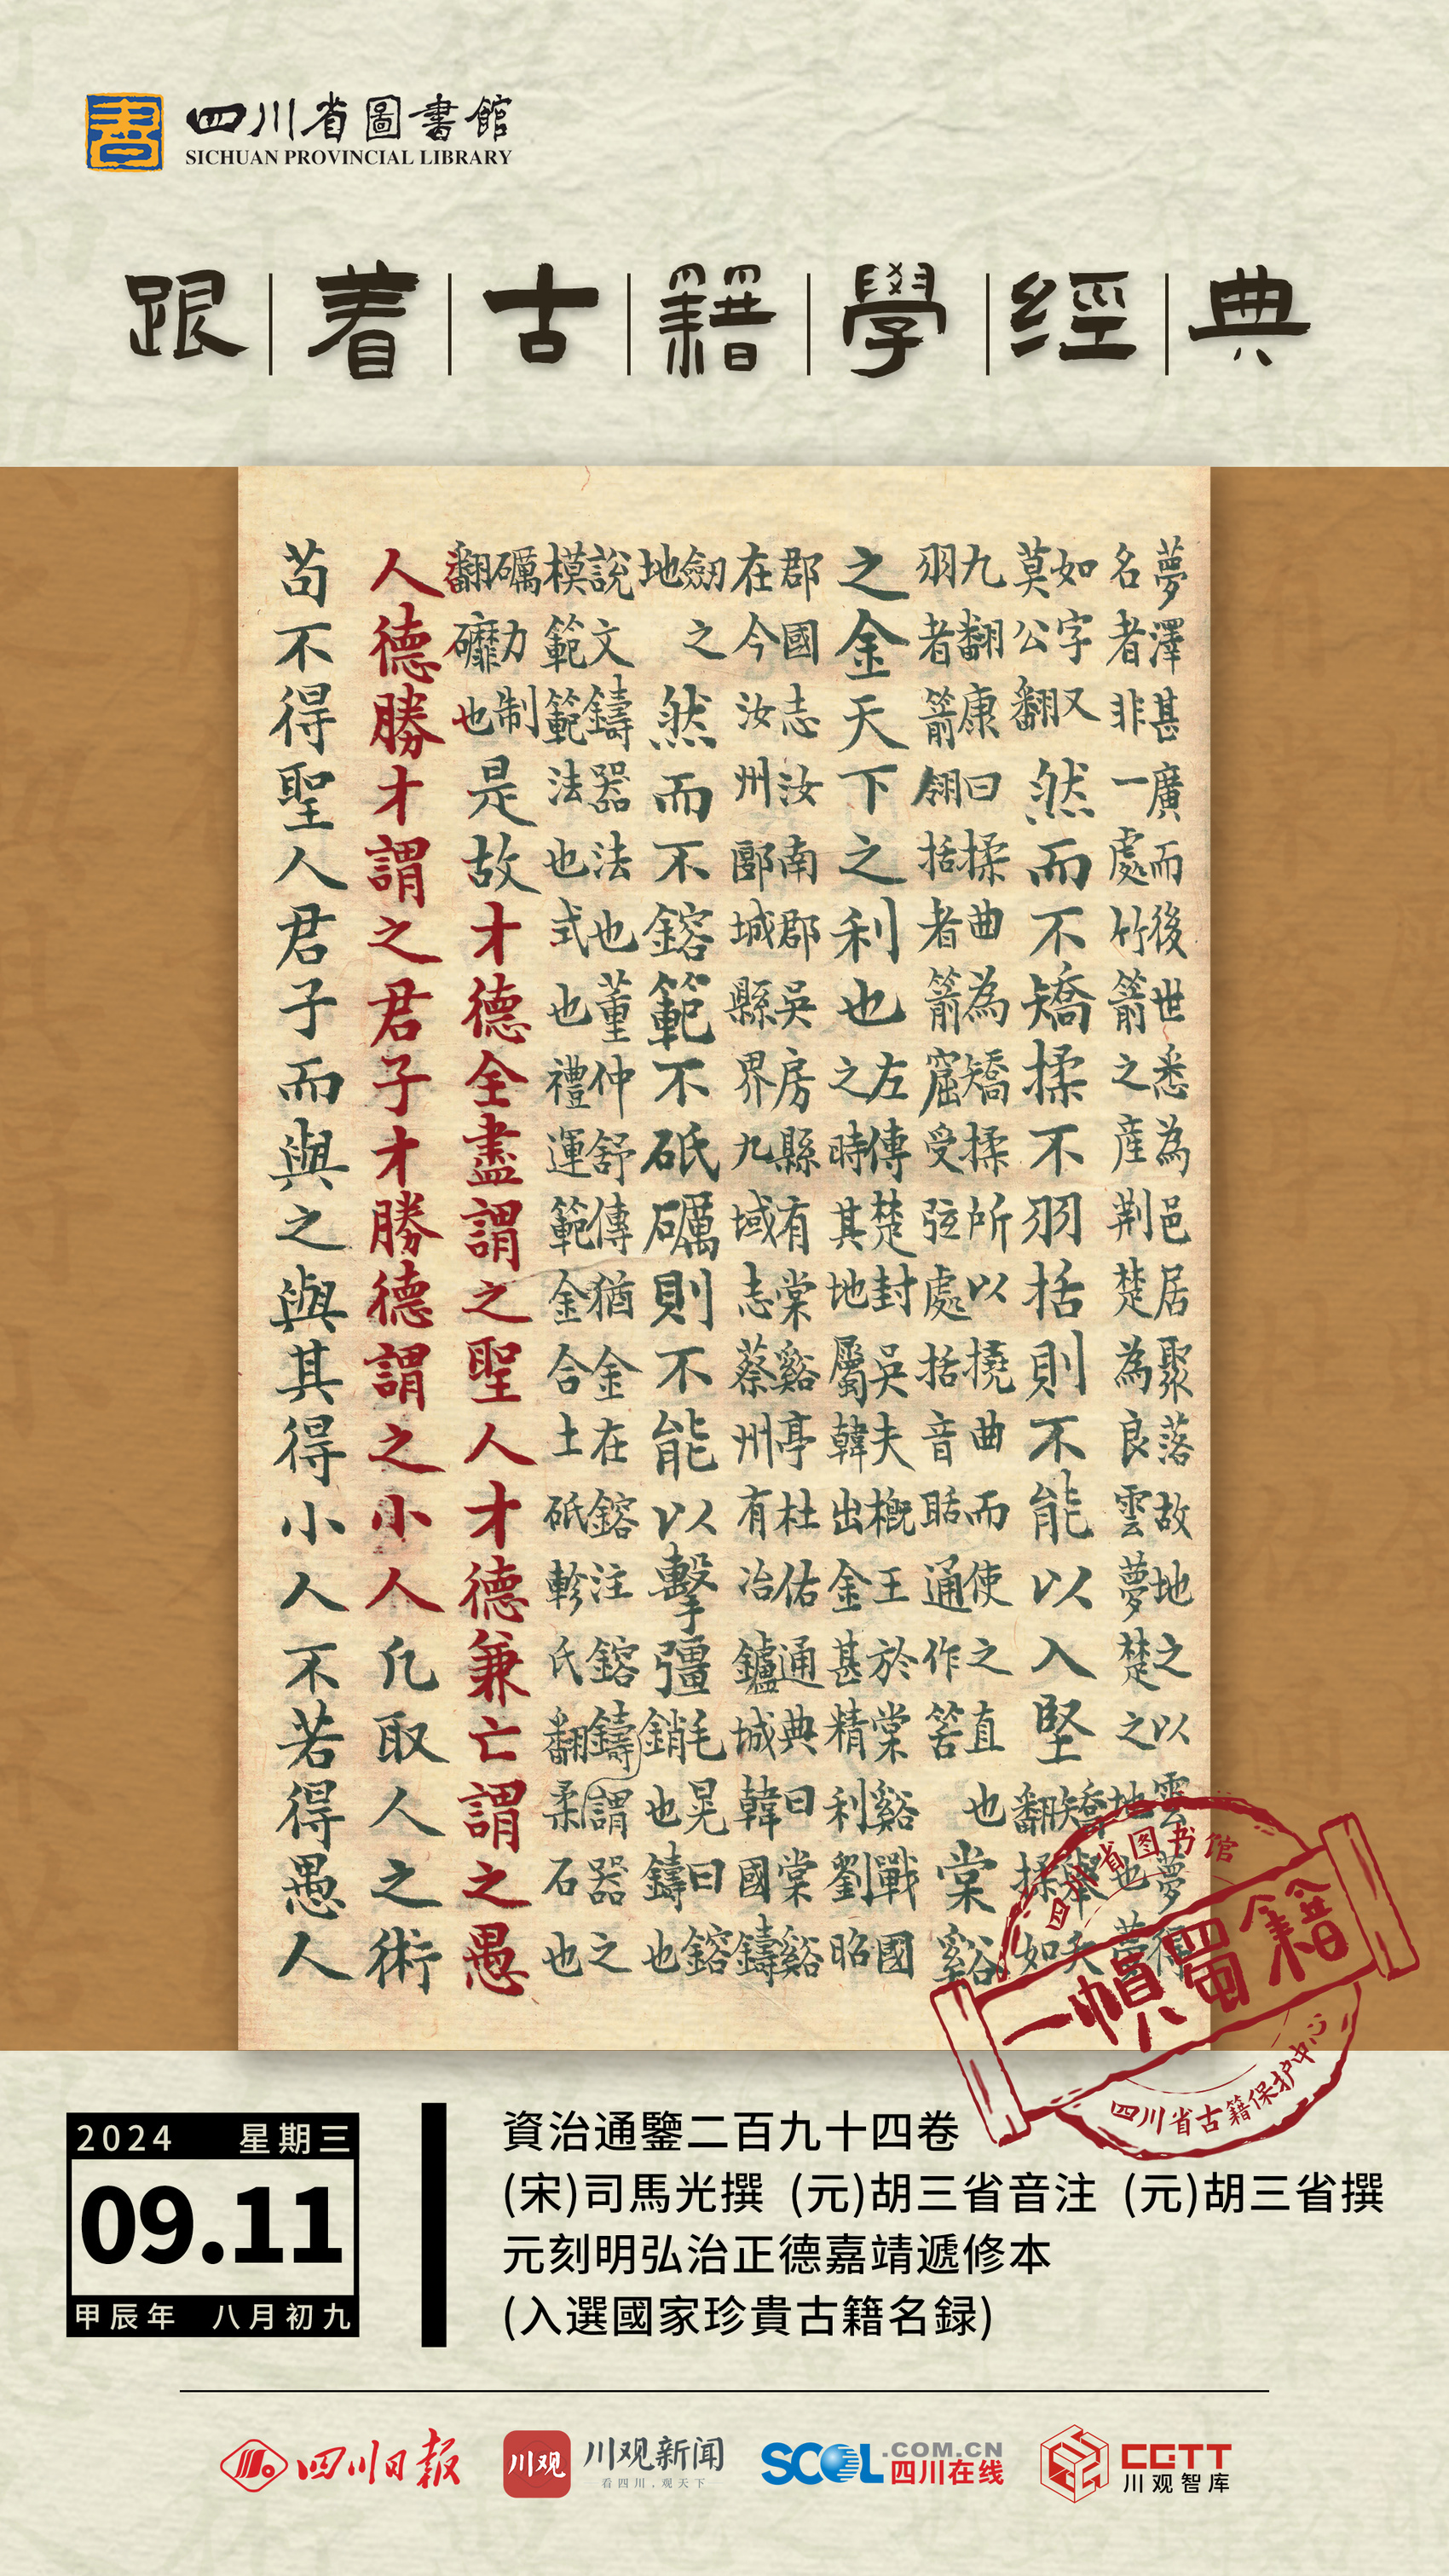 四川省圖書館
SICHUAN PROVINCIAL LIBRARY
跟着古籍學經典
夢澤甚廣而後世悉為邑居聚落故地之以雲夢得
名者非一處竹箭之產荊楚為良雲夢楚之地也夢
如字又
莫公翻
然而不矯揉不羽括則不能以入堅
矯舉夭
翻揉如
九翻康曰揉曲為矯揉所以撓曲而使之直也
羽者箭翎括者箭窟受弦處括音聒通作筈
棠谿
之金天下之利也
左傳楚封吳夫概王於棠谿戰國
之時其地屬韓出金甚精利劉昭
郡國志汝南郡吳房縣有棠谿亭杜佑通典曰棠谿
在今汝州郾城縣界九域志蔡州有冶鑪城韓國鑄
劔之
地
然而不鎔範不砥礪則不能以擊彊
毛晃曰鎔
銷也鑄也
說文鑄器法也董仲舒傳猶金在鎔注鎔鑄謂器之
模範範法也式也禮運範金合土砥軫氏翻柔石也
礪力制
翻䃺也
是故才德全盡謂之聖人才德兼亡謂之愚
人德勝才謂之君子才勝德謂之小人凡取人之術
苟不得聖人君子而與之與其得小人不若得愚人
四川省图书馆
一幀蜀籍
四川省古籍保护中心
2024 星期三
09.11
甲辰年 八月初九
資治通鑒二百九十四卷
(宋)司馬光撰 (元)胡三省音注 (元)胡三省撰
元刻明弘治正德嘉靖遞修本
(入選國家珍貴古籍名録)
四川日报
川观
川观新闻
看四川,观天下
SCOL.COM.CN
四川在线
CGTT
川观智库